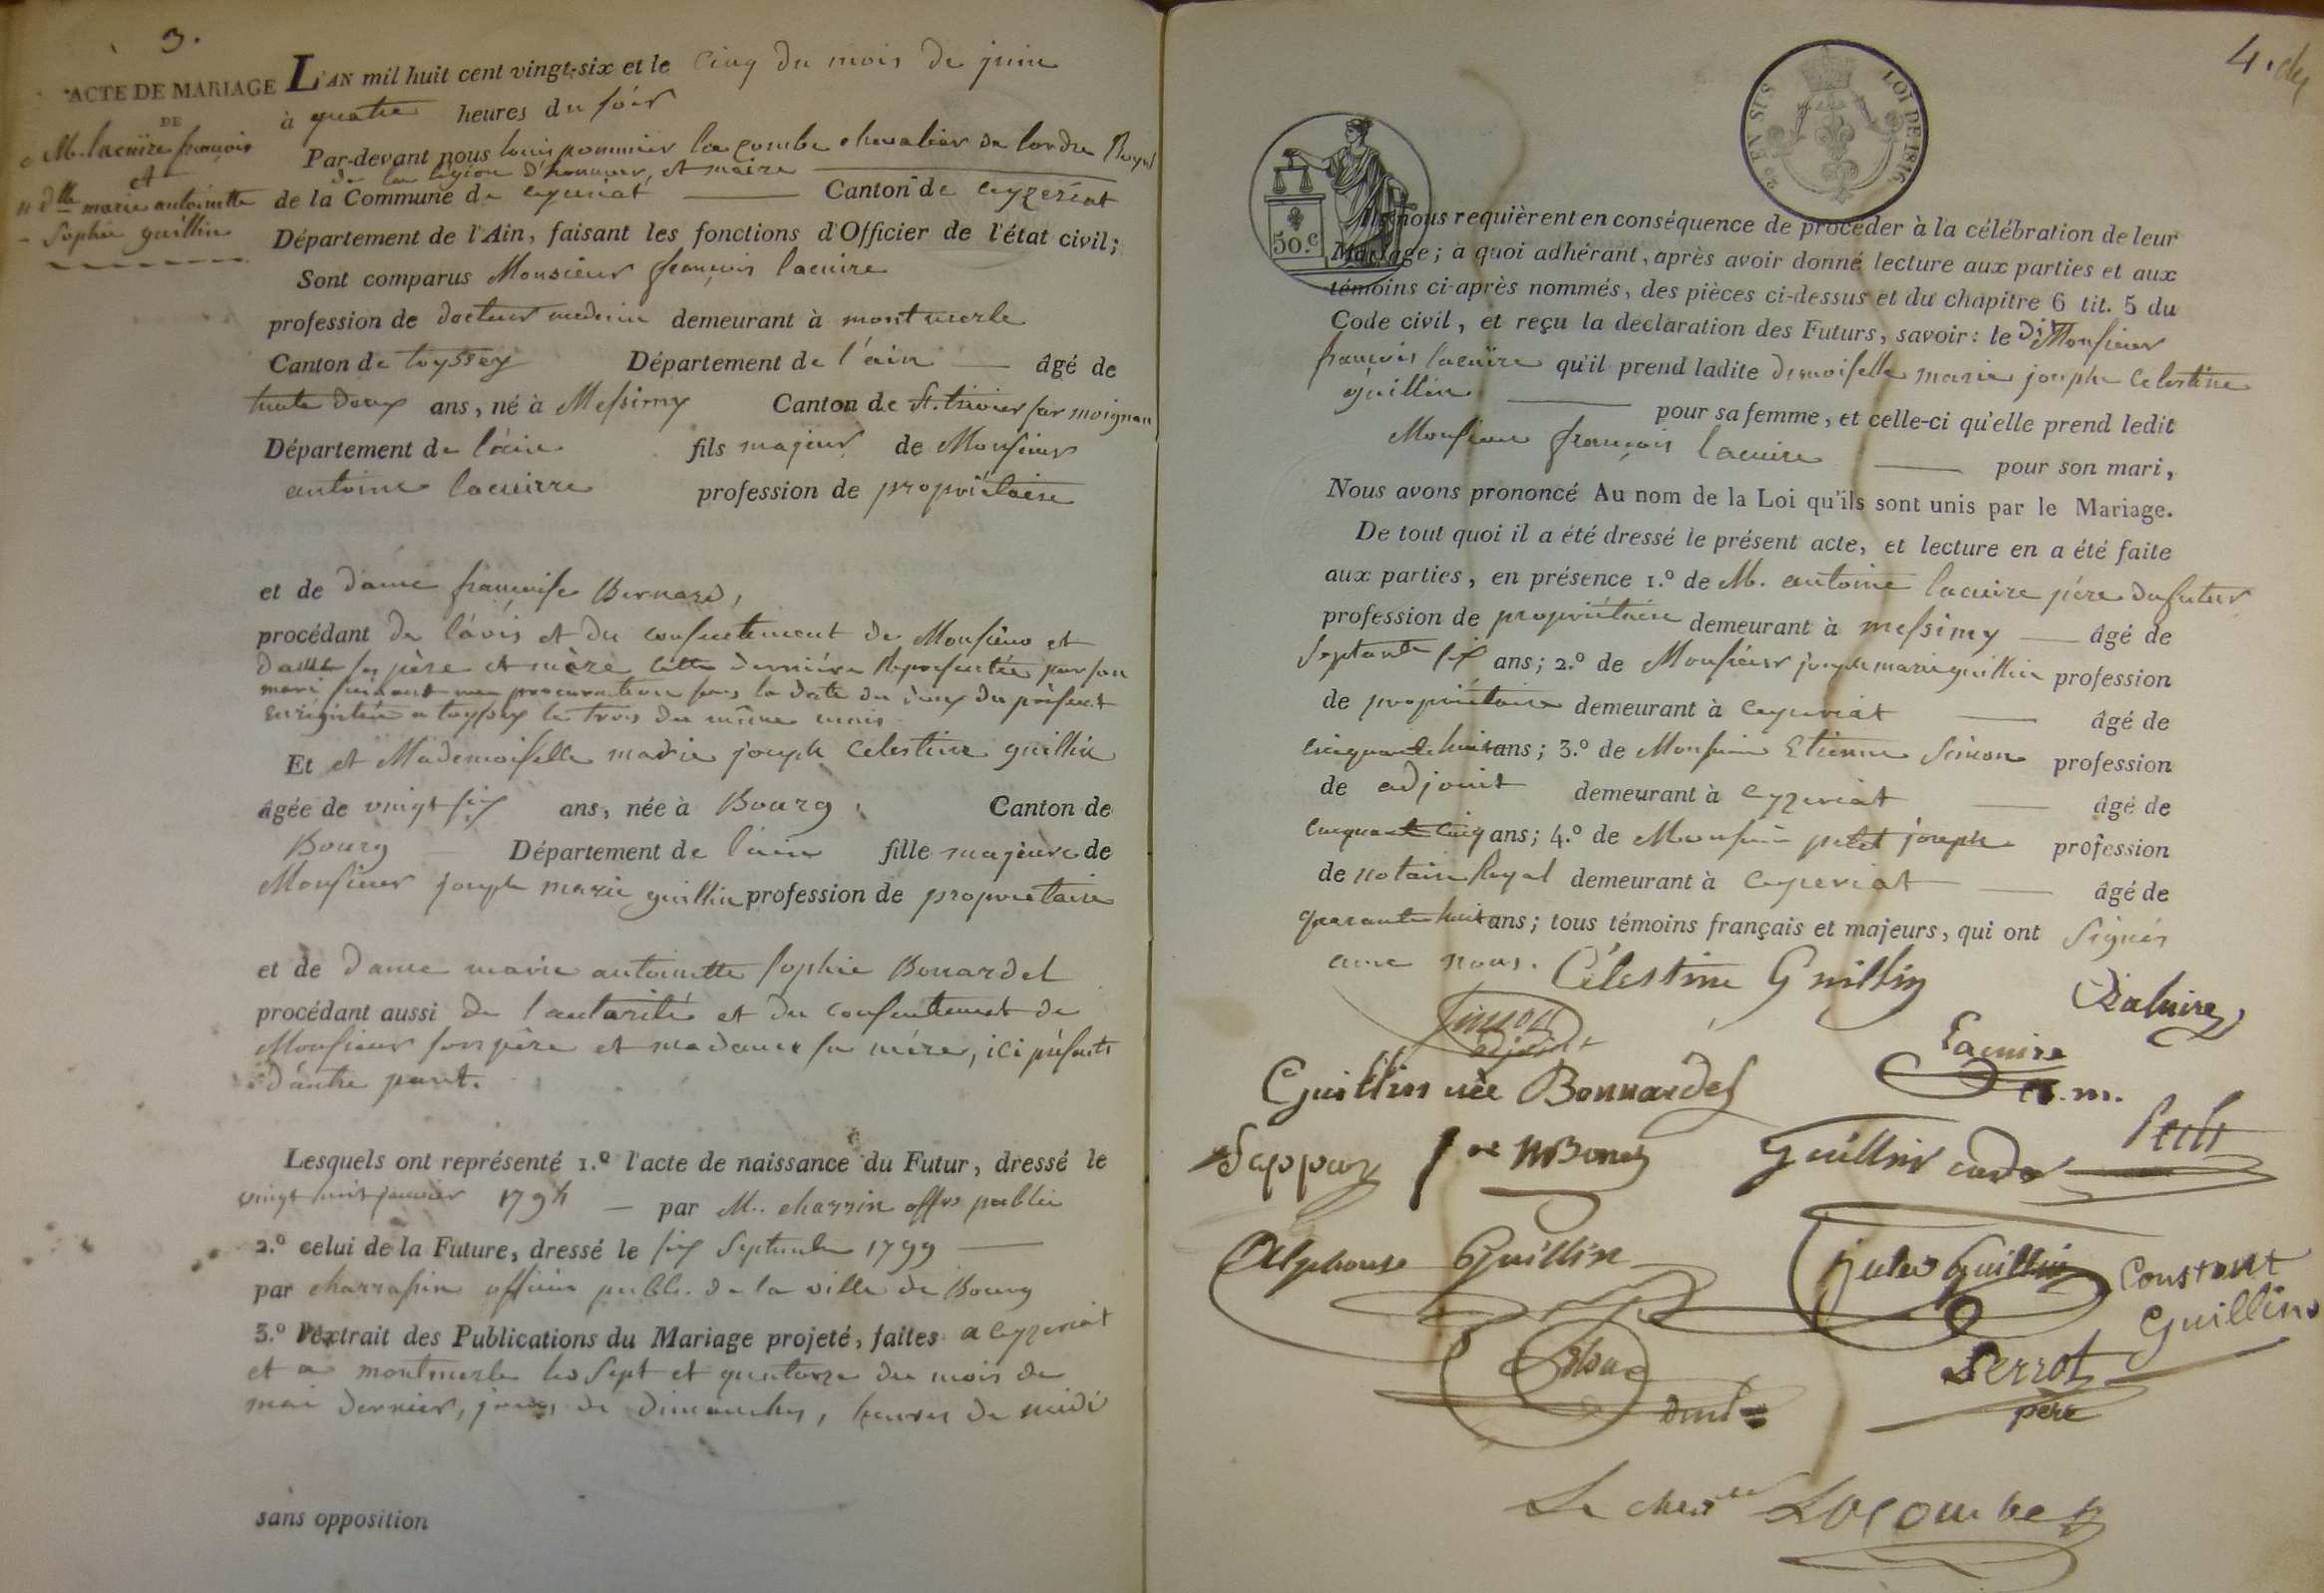 3.
ACTE DE MARIAGE
DE
M. lacuire françois
et
dlle marie antoinette
Sophie guillin
L'AN mil huit cent vingt-six et le cinq du mois de juin
à quatre heures du soir
Par-devant nous louis pommier la combe chevalier de lordre Royal
de la légion d'honneur, et maire
de la Commune de ceyzeriat Canton de ceyzeriat
Département de l'Ain, faisant les fonctions d'Officier de l'état civil;
Sont comparus Monsieur françois lacuire
profession de docteur medecin demeurant à montmerle
Canton de toyssey Département de l'ain âgé de
trente deux ans, né à Messimy Canton de St. trivier sur moignan
Département de l'ain fils majeur de Monsieur
antoine lacuire profession de propriétaire
et de dame françoise Bernard,
procédant de l'avis et du consentement de Monsieur et
dame ses père et mère cette dernière Représentée par son
mari suivant une procuration sous la date du deux du présent
Enrégistrée a toyssey le trois du même mois
Et et Mademoiselle marie joseph celestine guillin
âgée de vingt six ans, née à Bourg, Canton de
Bourg Département de l'ain fille majeure de
Monsieur joseph marie guillin profession de propriétaire
et de dame marie antoinette sophie Bonardel
procédant aussi de l'autorité et du consentement de
Monsieur son père et madame sa mère, ici présents
d'autre part.
Lesquels ont représenté 1.º l'acte de naissance du Futur, dressé le
vingt huit janvier 1794 par M. charrin offer public
2.º celui de la Future, dressé le six Septembre 1799
par charrassin officier public. de la ville de Bourg
3.º l'extrait des Publications du Mariage projeté, faites a ceyzeriat
et a montmerle les sept et quatorze du mois de
mai dernier, jours de dimanches, heures de midi
sans opposition
4.
LOI DE 1816
50.c
Ils nous requièrent en conséquence de procéder à la célébration de leur
Mariage; à quoi adhérant, après avoir donné lecture aux parties et aux
témoins ci-après nommés, des pièces ci-dessus et du chapitre 6 tit. 5 du
Code civil, et reçu la déclaration des Futurs, savoir: le dit Monsieur
françois lacuire qu'il prend ladite demoiselle marie joseph celestine
guillin pour sa femme, et celle-ci qu'elle prend ledit
Monsieur françois lacuire pour son mari,
Nous avons prononcé Au nom de la Loi qu'ils sont unis par le Mariage.
De tout quoi il a été dressé le présent acte, et lecture en a été faite
aux parties, en présence 1.º de M. antoine lacuire père du futur
profession de propriétaire demeurant à messimy âgé de
septante six ans; 2.º de Monsieur joseph marie guillin profession
de propriétaire demeurant à ceyzeriat âgé de
cinquante huit ans; 3.º de Monsieur Etienne Simon profession
de adjoint demeurant à ceyzeriat âgé de
cinquante cinq ans; 4.º de Monsieur petit joseph profession
de notaire Royal demeurant à ceyzeriat âgé de
quarante huit ans; tous témoins français et majeurs, qui ont signés
avec nous.
Célestine Guillin
Simon
adjoint
Lacuire
D. m.
Guillin née Bonnardel
Guillin
Petit
Alphonse Guillin
Jules Guillin
Constant
Guillin
Perrot
père
Le cher Lacombe